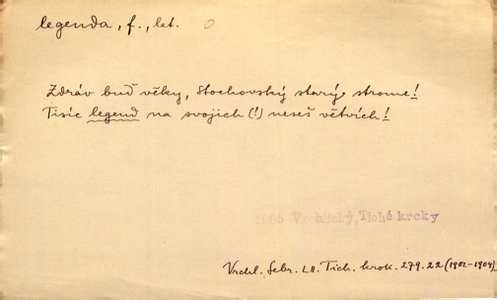 legenda, f., lat.
Zdráv buď věky, Stochovský starý strome!
Tisíc legend na svojich (!) neseš větvích!
1905 Vrchlický, Tiché kroky
Vrchl. Sebr. LII. Tich. krok. 279.22 (1902-1904)